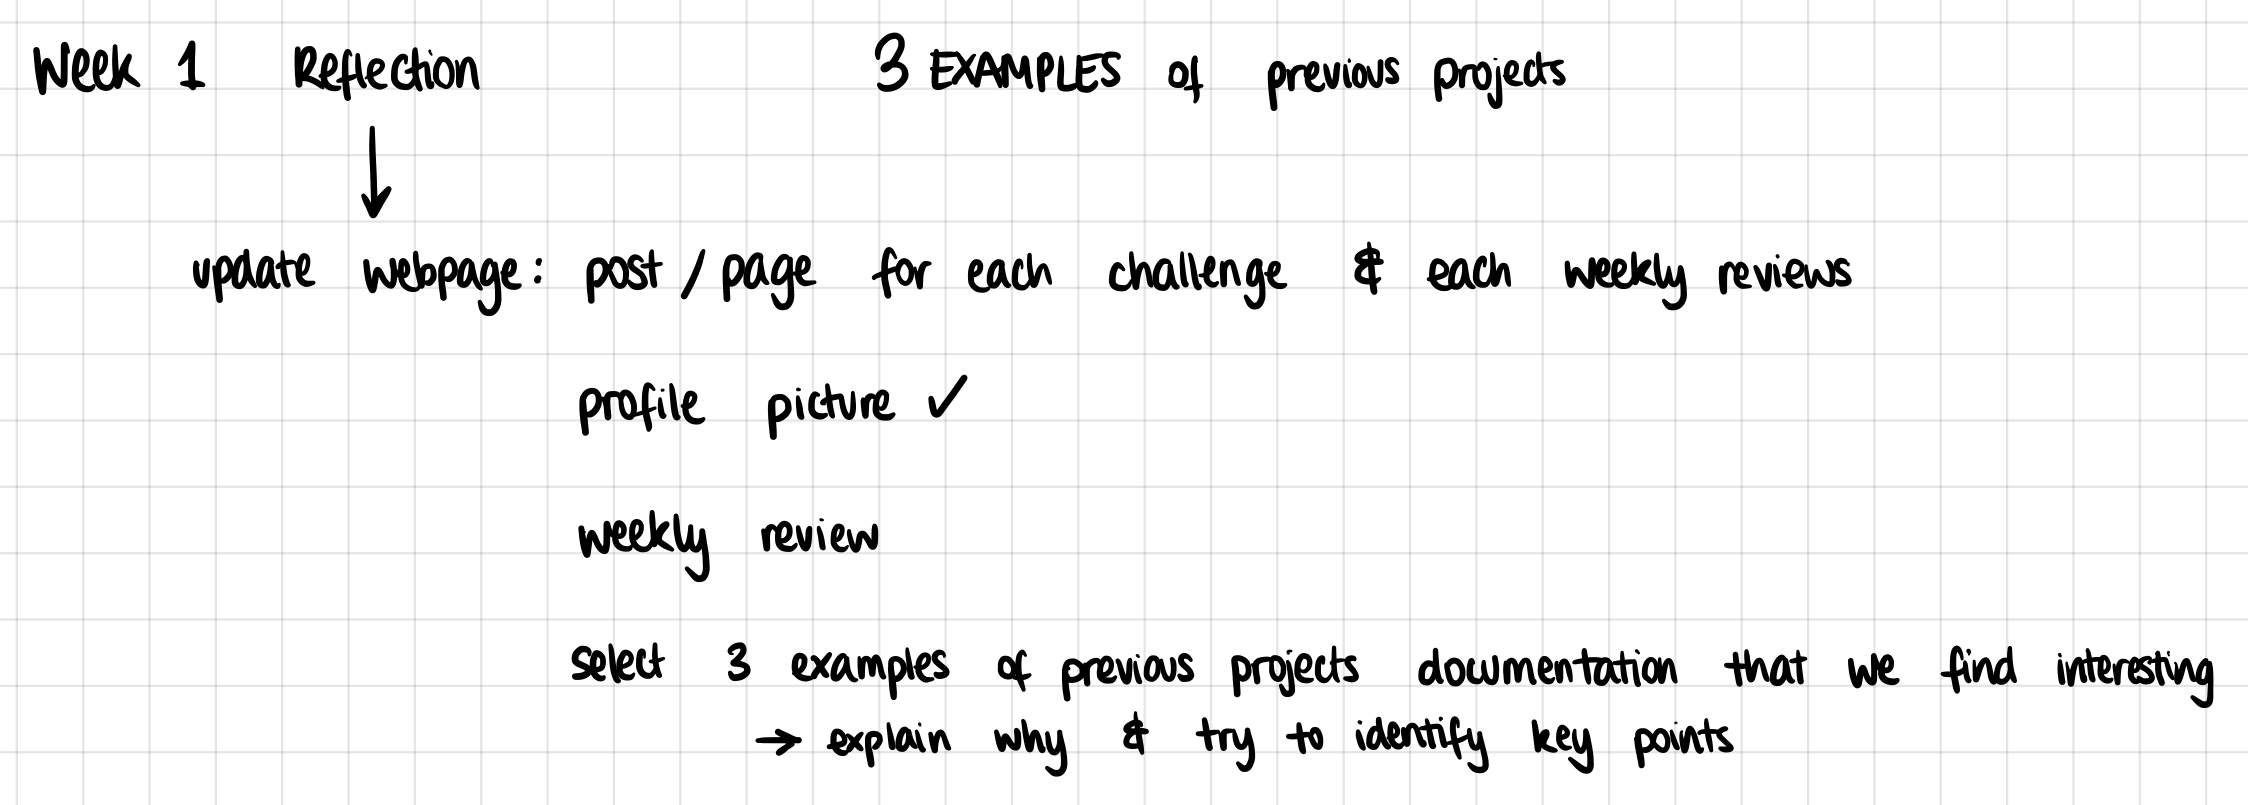 Week 1 Reflection 3 EXAMPLES of previous projects
↓
update webpage: post / page for each challenge & each weekly reviews
profile picture ✓
weekly review
select 3 examples of previous projects documentation that we find interesting
→ explain why & try to identify key points